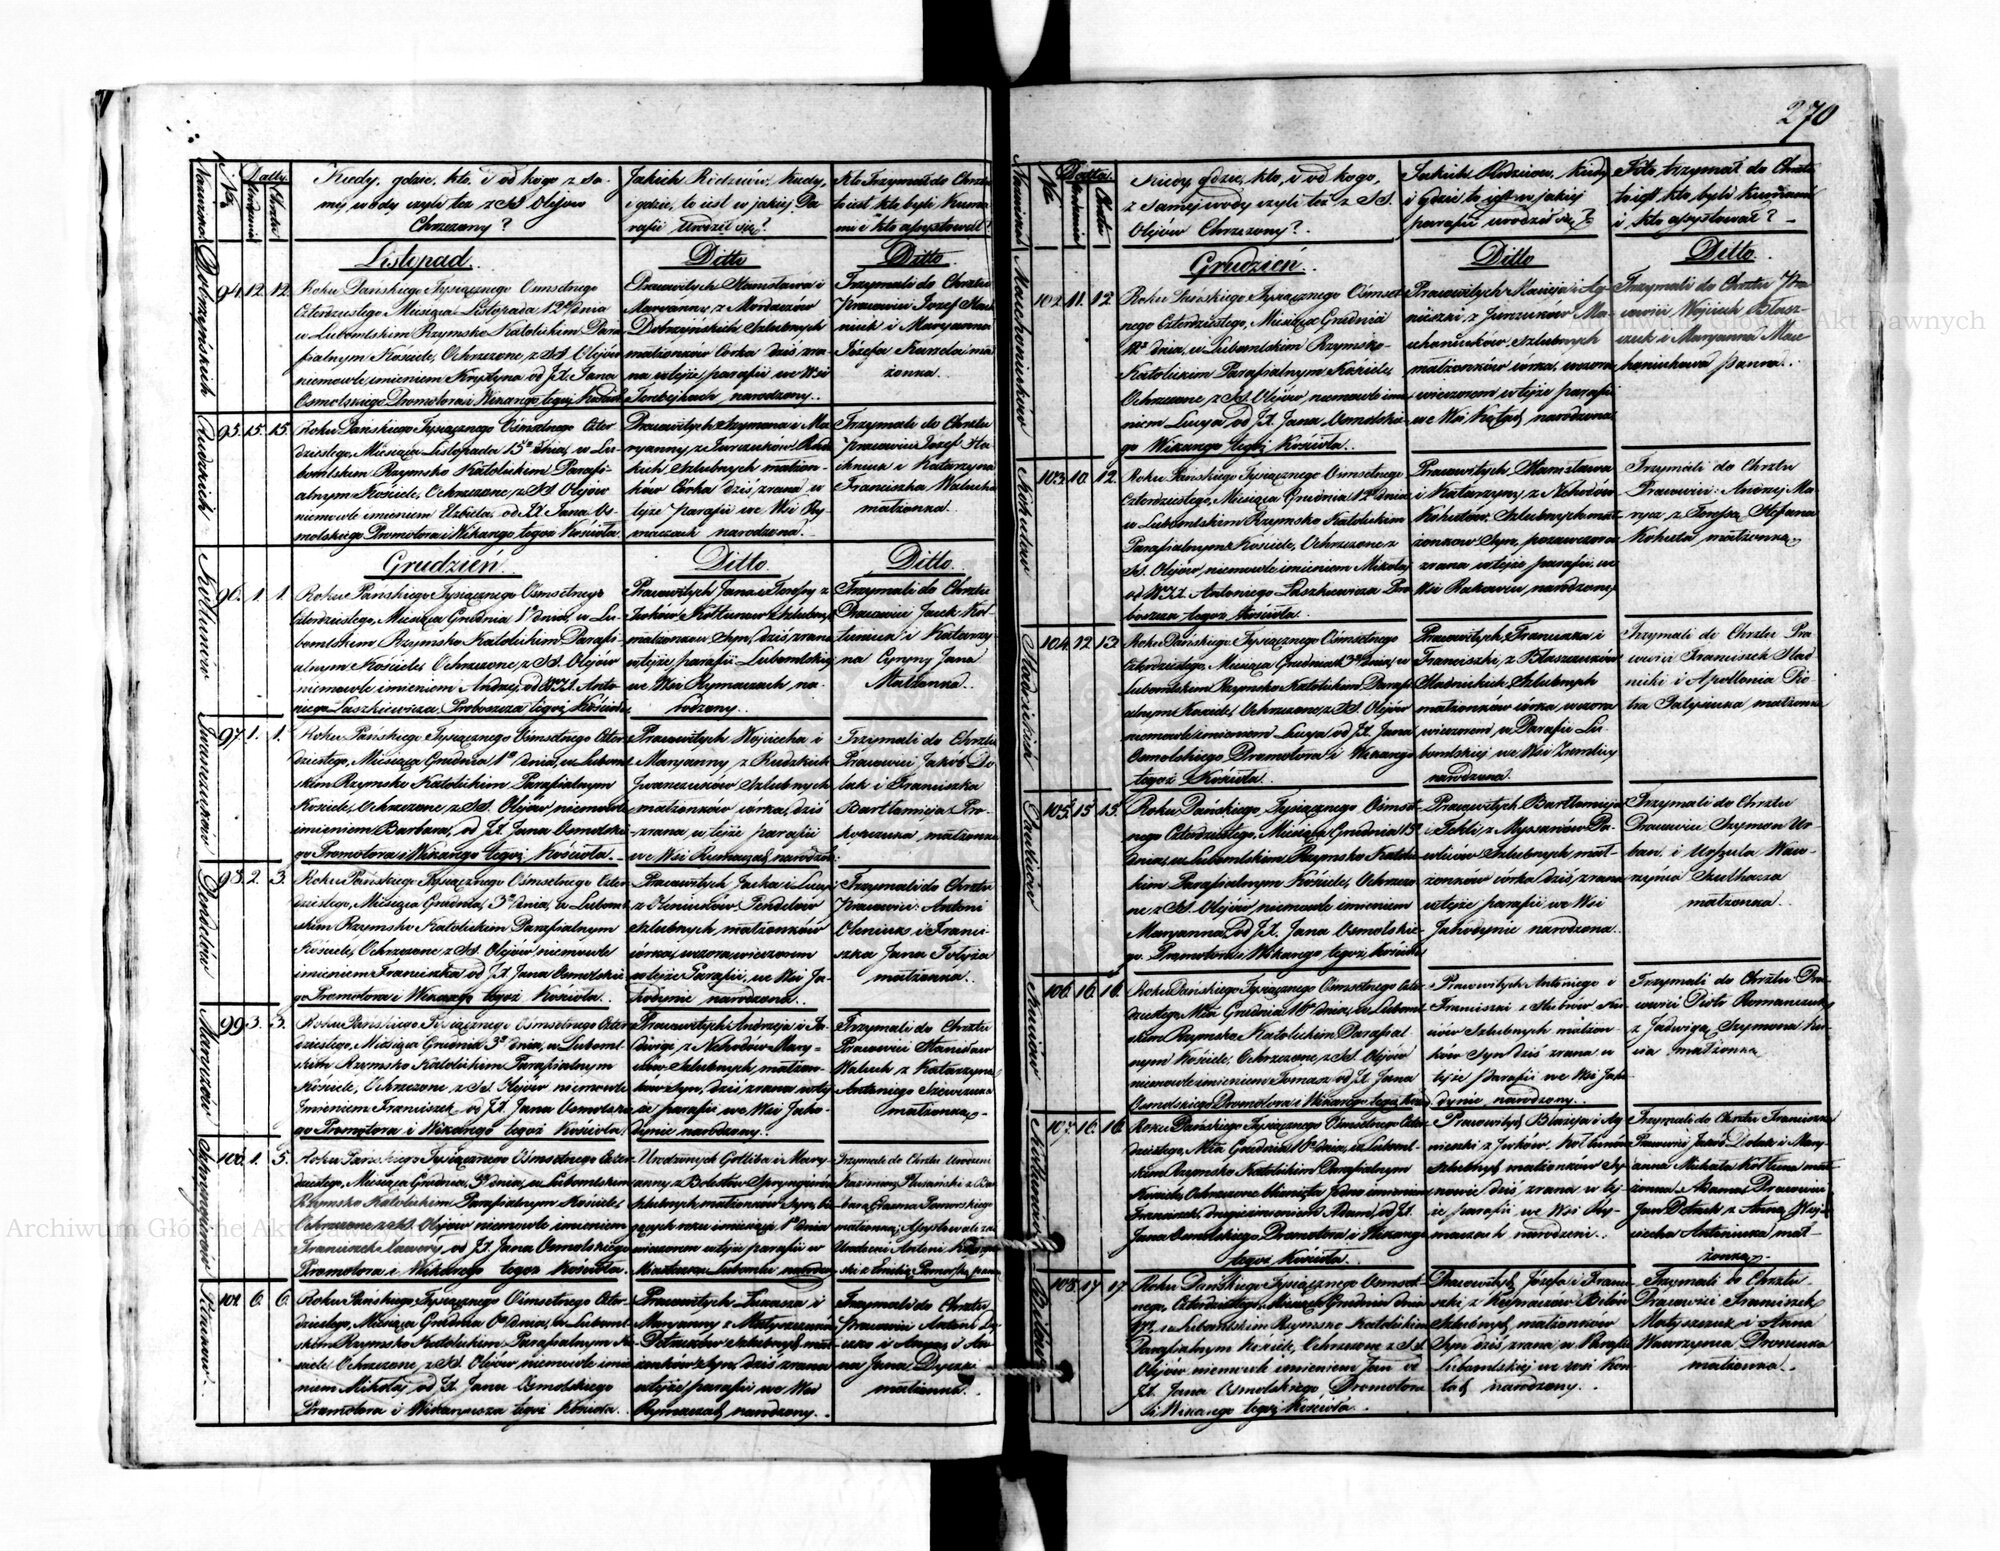 270
Nazwisko
Nr.
Datty
Urodzenia
Chrztu
Kiedy, gdzie, kto, i od kogo z sa-
mej wody czyli też z SS. Olejów
Chrzczony?
Jakich Rodziców, kiedy,
i gdzie, to iest w jakiej Pa-
rafii Urodził się?
Kto Trzymał do Chrztu
to iest kto byli Kuma-
mi i kto asystował?
Listopad.
Ditto
Ditto
Dobrzyńskich
94. 12. 12.
Roku Pańskiego Tysiącznego Osmsetnego
Czterdziestego Miesiąca Listopada 12go dnia
w Lubomlskim Rzymsko Katolickim Para-
fialnym Kościele, Ochrzczone z SS. Olejów
niemowle imieniem Krystyna od JX. Jana
Osmolskiego Promotora i Wikarego tegoż Kościoła
Pracowitych Stanisława i
Maryanny z Mordaczów
Dobrzyńskich Szlubnych
małżonków Córka dziś zra-
na w tejże parafii we Wsi
narodzona.
Trzymali do Chrztu
Pracowici Jozef
i Maryanna
Józefa mał-
żonka.
Rudzkich
95. 15. 15.
Roku Pańskiego Tysiącznego Osmsetnego Czter-
dziestego, Miesiąca Listopada 15go dnia, w Lu-
bomlskim Rzymsko Katolickim Parafi-
alnym Kościele, Ochrzczone z SS. Olejów
niemowle imieniem Elżbieta, od JX. Jana Os-
molskiego Promotora i Wikarego tegoż Kościoła.
Pracowitych Szymona i Ma-
ryanny z Rudz-
kich Szlubnych małżon-
ków Córka dziś zrana w
tejże parafii we Wsi Ry-
maczach narodzona.
Trzymali do Chrztu
Pracowici Jozef
i Katarzyna
Franciszka Walucha
małżonka.
Grudzień.
Ditto
Ditto.
Kołtunów
96. 1. 1.
Roku Pańskiego Tysiącznego Osmsetnego
Czterdziestego, Miesiąca Grudnia 1go dnia, w Lu-
bomlskim Rzymsko Katolickim Parafi-
alnym Kościele, Ochrzczone z SS. Olejów
niemowle imieniem Andrzej, od WJX. Anto-
niego Laszkiewicza Proboszcza tegoż Kościoła
Pracowitych Jana i Teresy z
Juków Kołtunów Szlubnych
małżonków Syn, dziś zrana
w tejże parafii Lubomlskiej
we Wsi Rymaczach na-
rodzony.
Trzymali do Chrztu
Pracowici Jacek Koł-
i Katarzy-
na Jana
Małżonka.
Iwaszczuków
97. 1. 1.
Roku Pańskiego Tysiącznego Osmsetnego Czter-
dziestego, Miesiąca Grudnia 1go dnia, w Luboml-
skim Rzymsko Katolickim Parafialnym
Kościele, Ochrzczone z SS. Olejów niemowle
imieniem Barbara, od JX. Jana Osmolskie-
go Promotora i Wikarego tegoż Kościoła.
Pracowitych Wojciecha i
Maryanny z Rudzkich
Szlubnych
małżonków córka, dziś
zrana w tejże parafii
we Wsi Rymaczach narodzona
Trzymali do Chrztu
Pracowici, Jakób Po-
lak i Franciszka
Bartłomieja Pro-
małżonka
Pendelów
98. 2. 3.
Roku Pańskiego Tysiącznego Osmsetnego Czter-
dziestego, Miesiąca Grudnia, 3go dnia, w Luboml-
skim Rzymsko Katolickim Parafialnym
Kościele, Ochrzczone z SS. Olejów niemowle
imieniem Franciszka od JX. Jana Osmolskie-
go Promotora i Wikarego tegoż Kościoła.
Pracowitych Jacka i Lucyi
z Oleniuków Pendelów
Szlubnych małżonków
córka, wczora wieczorem
w tejże Parafii, we Wsi Ja-
hodynie narodzona.
Trzymali do Chrztu
Pracowici Antoni
Oleniuk i Franci-
szka Jana
małżonka.
99. 3. 3.
Roku Pańskiego Tysiącznego Osmsetnego Czter-
dziestego, Miesiąca Grudnia 3go dnia, w Luboml-
skim Rzymsko Katolickim Parafialnym
Kościele, Ochrzczone z SS. Olejów niemowle
Imieniem Franciszek od JX. Jana Osmolskie-
go Promotora i Wikarego tegoż Kościoła
Pracowitych Andrzeja i Ja-
dwigi z Nehodów Mary-
Szlubnych małżon-
ków Syn, dziś zrana w tej-
że parafii we Wsi Jaho-
dynie narodzony.
Trzymali do Chrztu
Pracowici Stanisław
Waluch z Katarzyną
Antoniego
małżonką.
100. 1. 5.
Roku Pańskiego Tysiącznego Osmsetnego Czter-
dziestego, Miesiąca Grudnia, 5go dnia, w Lubomlskim
Rzymsko Katolickim Parafialnym Kościele,
Ochrzczone z SS. Olejów niemowle imieniem
Franciszek Xawery, od JX. Jana Osmolskiego
Promotora i Wikarego tegoż Kościoła.
Urodzonych Gotliba i Mary-
anny z
Szlubnych małżonków Syn, bie-
żących roku i miesiąca 1go dnia
wieczorem w tejże parafii w
Miasteczku Lubomlu
Trzymali do Chrztu Urodzeni
Kazimierz
małżonka; Asystowali zaś
Urodzeni Antoni
101. 6. 6.
Roku Pańskiego Tysiącznego Osmsetnego Czter-
dziestego, Miesiąca Grudnia 6go dnia, w Luboml-
skim Rzymsko Katolickim Parafialnym Ko-
ściele Ochrzczone, z SS. Olejów niemowle imie-
niem Mikołaj od JX. Jana Osmolskiego
Promotora i Wikaryusza tegoż Kościoła.
Pracowitych Łukasza i
Maryanny z
Szlubnych mał-
żonków Syn, dziś zrana
w tejże parafii we Wsi
Rymaczach narodzony.
Trzymali do Chrztu
Pracowici Antoni
i An-
na Jana
małżonka.
Nazwisko
Nr.
Datta.
Urodzenia
Chrztu
Kiedy, gdzie, kto, i od kogo,
z samej wody czyli też z SS.
Olejów Chrzczony?
Jakich Rodziców, kiedy
i gdzie to iest w jakiej
parafii urodził się?
Kto trzymał do Chrztu
to iest kto byli kumami
i kto asystował?
Grudzień.
Ditto
Ditto.
Machoniuków
102. 11. 12.
Roku Pańskiego Tysiącznego Osmset-
nego Czterdziestego, Miesiąca Grudnia
12go dnia, w Lubomlskim Rzymsko-
Katolickim Parafialnym Kościele,
Ochrzczone z SS. Olejów, niemowle imie-
niem Lucya od JX. Jana Osmolskie-
go Wikarego tegoż Kościoła.
Pracowitych Macieja i Ag-
nieszki z Jurczuków Ma-
choniuków, Szlubnych
małżonków córka, wczora
wieczorem w tejże parafii
we Wsi narodzona
Trzymali do Chrztu Pra-
cowici Wojciech Błasz-
czuk i Maryanna Mac-
honiukowa panna.
Kohutów
103. 10. 12.
Roku Pańskiego Tysiącznego Osmsetnego
Czterdziestego, Miesiąca Grudnia 12go dnia
w Lubomlskim Rzymsko Katolickim
Parafialnym Kościele, Ochrzczone z
SS. Olejów, niemowle imieniem Mikołaj
od WJX. Antoniego Laszkiewicza Pro-
boszcza tegoż Kościoła.
Pracowitych Stanisława
i Katarzyny z Nehodów
Kohutów Szlubnych mał-
żonków Syn, pozawczora
zrana w tejże parafii, we
Wsi narodzony
Trzymali do Chrztu
Pracowici: Andrzej Ma-
rycz z Teressą Stefana
Kohuta małżonką
Sładnickich
104. 12. 13.
Roku Pańskiego Tysiącznego Osmsetnego
Czterdziestego, Miesiąca Grudnia 13go dnia, w
Lubomlskim Rzymsko Katolickim Parafi-
alnym Kościele, Ochrzczone, z SS. Olejów
niemowle imieniem Lucya od JX. Jana
Osmolskiego Promotora i Wikarego
tegoż Kościoła.
Pracowitych Franciszka i
Franciszki, z Błaszczuków
Sładnickich, Szlubnych
małżonków córka, wczora
wieczorem, w Parafii Lu-
bomlskiej we Wsi
narodzona.
Trzymali do Chrztu Pra-
cowici Franciszek Sład-
nicki i Apollonia Pio-
tra małżonka
105. 15. 15.
Roku Pańskiego, Tysiącznego Osmset-
nego Czterdziestego, Miesiąca Grudnia 15go
dnia, w Lubomlskim Rzymsko Katolic-
kim Parafialnym Kościele, Ochrzczo-
ne z SS. Olejów niemowle imieniem
Maryanna od JX. Jana Osmolskie-
go Promotora i Wikarego tegoż kościoła
Pracowitych Bartłomieja
i Tekli z
Szlubnych mał-
żonków córka dziś zrana
w tejże parafii we Wsi
Jahodynie narodzona.
Trzymali do Chrztu
Pracowici Szymon Ur-
ban i Urszula Waw-
rzyńca
małżonka.
106. 16. 16.
Roku Pańskiego Tysiącznego Osmsetnego Czter-
dziestego, Mca Grudnia 16go dnia, w Luboml-
skim Rzymsko Katolickim Parafial-
nym Kościele, Ochrzczone, z SS. Olejów
niemowle imieniem Tomasz od JX. Jana
Osmolskiego Promotora i Wikarego tegoż Kościoła
Pracowitych Antoniego i
Franciszki z
Szlubnych małżon-
ków Syn dziś zrana w
tejże parafii we Wsi Jaho-
dynie narodzony.
Trzymali do Chrztu Pra-
cowici Piotr Romaniuk
z Jadwigą Szymona
małżonką
Kołtunów
107. 16. 16.
Roku Pańskiego Tysiącznego Osmsetnego Czter-
dziestego, Mca Grudnia 16go dnia, w Luboml-
skim Rzymsko Katolickim Parafialnym
Kościele, Ochrzczone bliźnięta jedno imieniem
Franciszek, drugie imieniem Adam, od JX.
Jana Osmolskiego Promotora i Wikarego
tegoż Kościoła.
Pracowitych Błażeja i Ag-
nieszki z Juków Kołtunów
Szlubnych małżonków Sy-
nowie dziś zrana w tej-
że parafii we Wsi Ry-
maczach narodzeni.
Trzymali do Chrztu Franciszka
Pracowici Polak i Mary-
anna Michała Kołtuna mał-
żonka Adama, Pracowici
Jan z Anną Woj-
ciecha mał-
żonką.
108. 17. 17.
Roku Pańskiego Tysiącznego Osmset-
nego, Czterdziestego, Miesiąca Grudnia dnia
17go, w Lubomlskim Rzymsko Katolickim
Parafialnym Kościele, Ochrzczone z SS.
Olejów niemowle imieniem Jan od
JX. Jana Osmolskiego Promotora
i Wikarego tegoż Kościoła.
Pracowitych Józefa i Franci-
szki, z
Szlubnych małżonków
Syn dziś zrana w Parafii
Lubomlskiej we wsi
narodzony.
Trzymali do Chrztu
Pracowici Franciszek
i Anna
Wawrzyńca
małżonka.
Archiwum Główne Akt Dawnych
Archiwum Główne Akt Dawnych